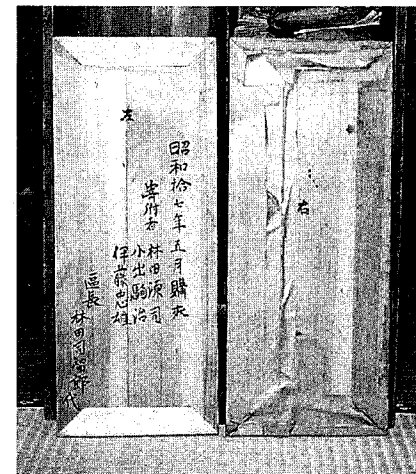 右
左
昭和拾七年五月購求
寄附者 林田源司
小出駒治
伊藤忠雄
區長
林田司留郎代